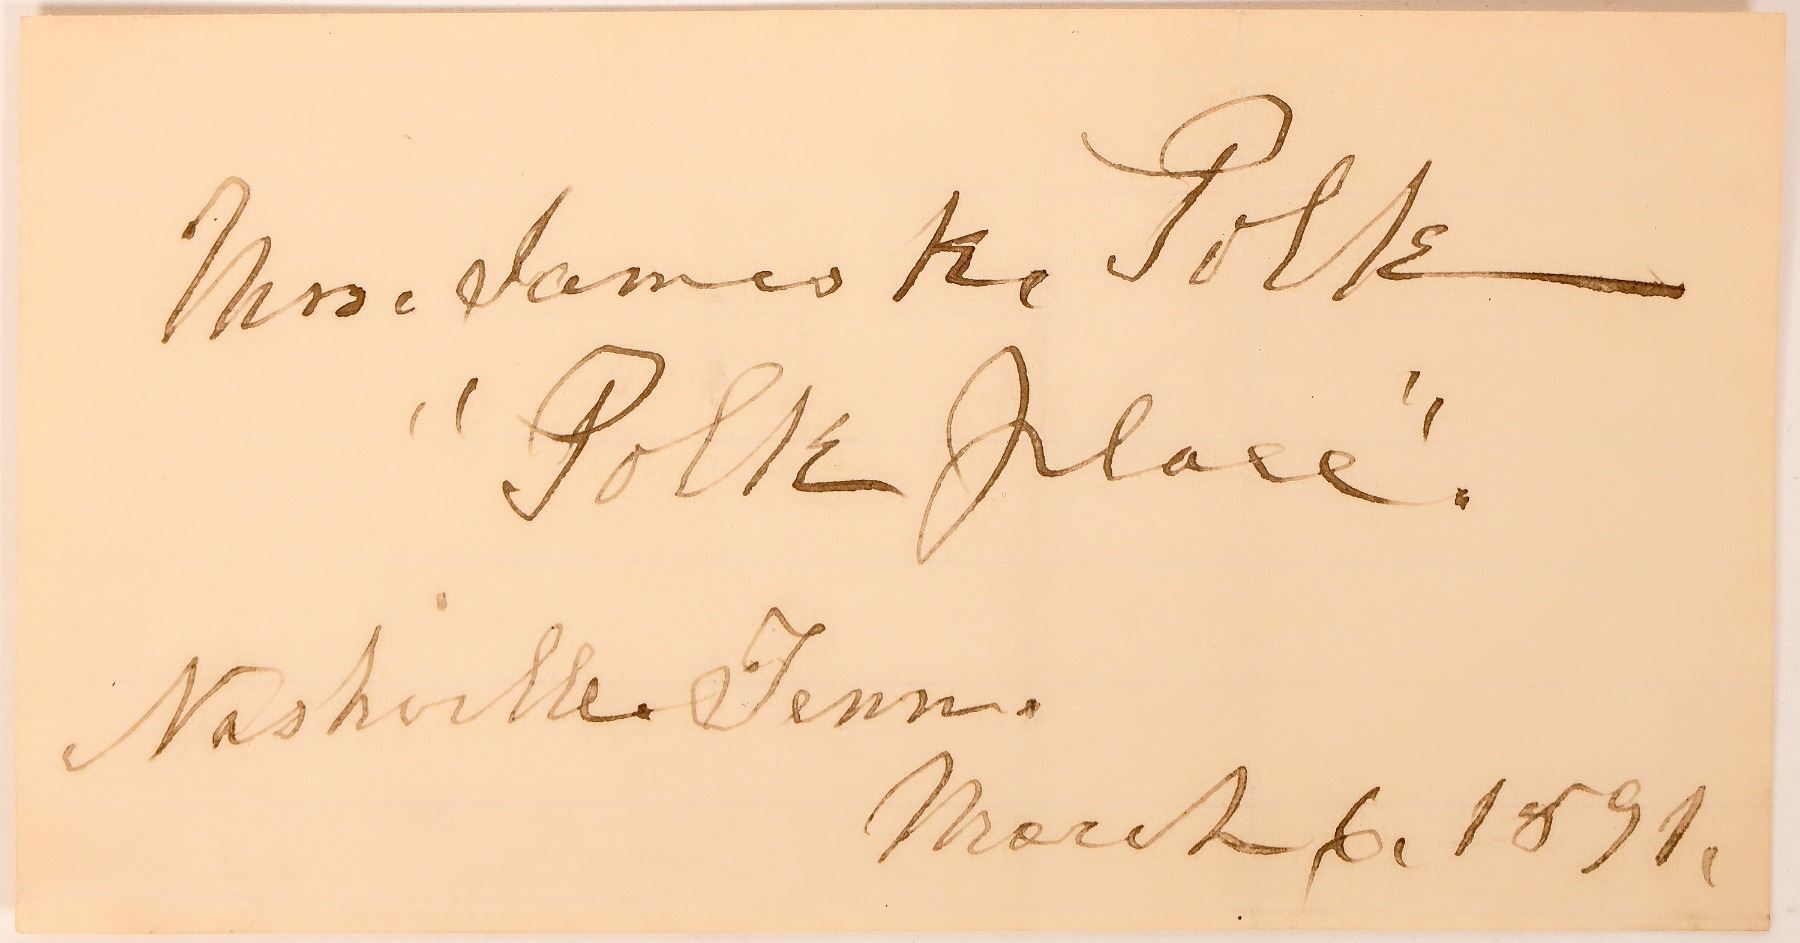 Mrs. James K. Polk
"Polk Place".
Nashville. Tenn.
March 6. 1891.